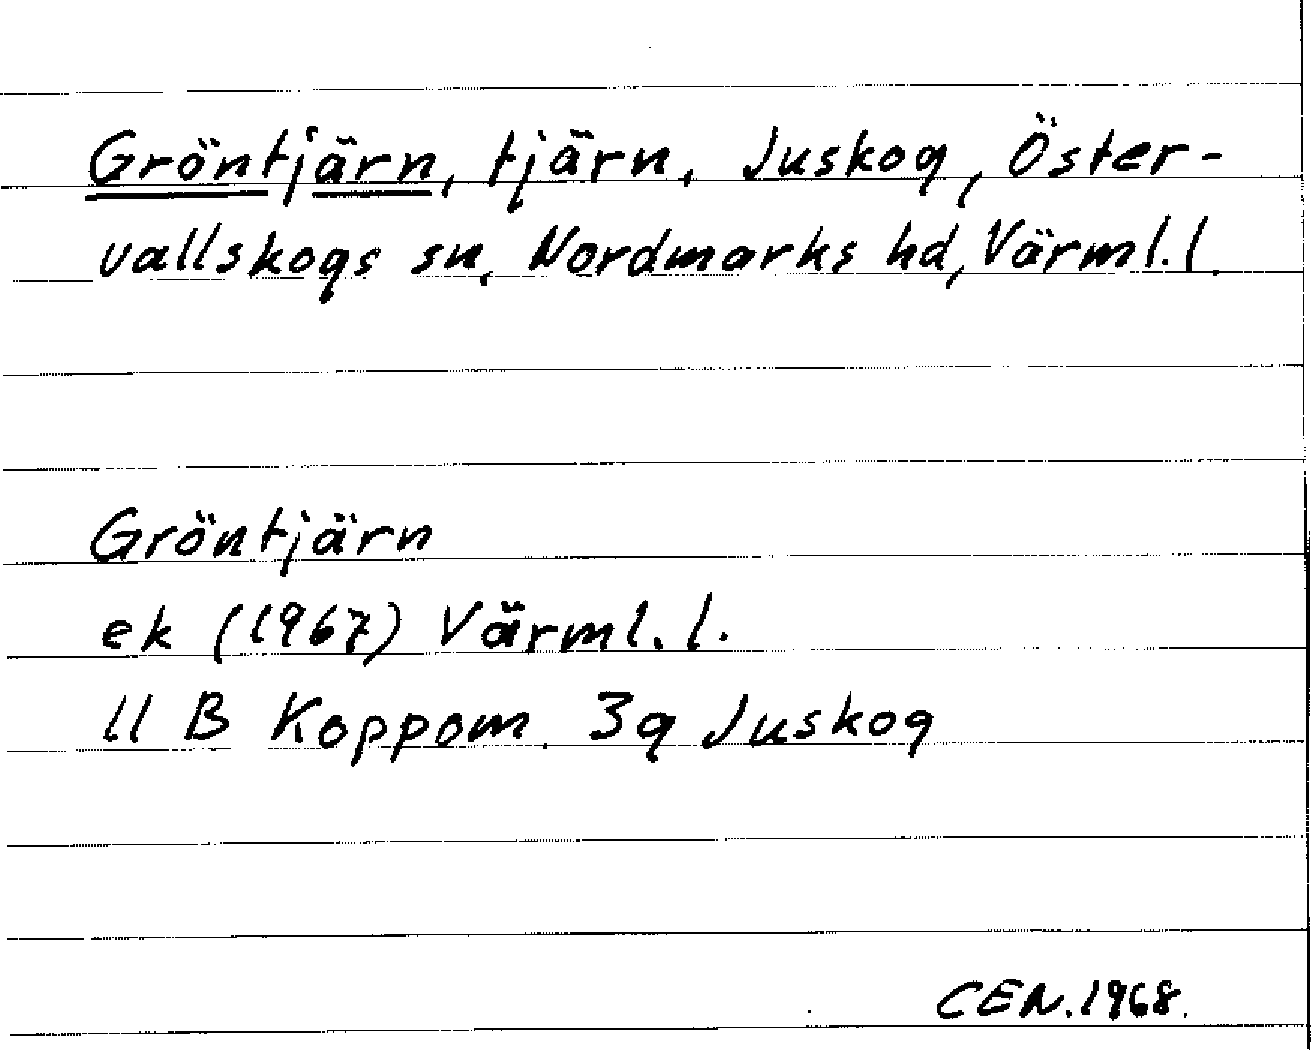 Gröntjärn, tjärn, Juskog, Öster-
vallskogs sn, Nordmarks hd, Värml. l.
Gröntjärn
ek (1967) Värml. l.
11 B Koppom. 3g Juskog
CEN. 1968.